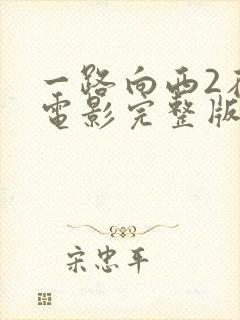 一路向西2在
电影完整版
宋忠平